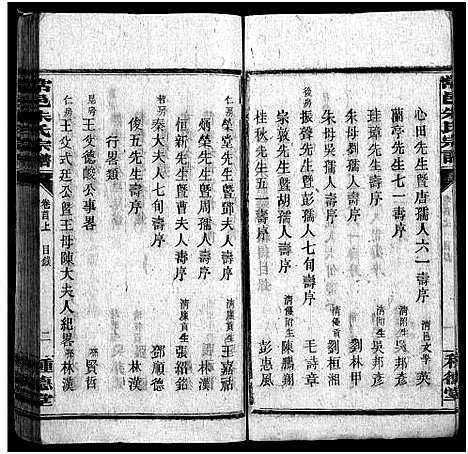 心田先生暨唐孺人六一壽序 清邑文學 英
蘭亭先生七一壽序 清附生 吳邦彥
珪璋先生六旬壽序 清附生 吳邦彥
朱母劉孺人壽序 劉林甲
朱母吳孺人壽序 清優貢 劉桓湘
後房 振聲先生暨彭孺人七旬壽序 毛詩章
宗敦先生暨胡孺人壽序 清優附生 陳鵬翔
桂秋先生五一壽序 彭惠風
常邑朱氏宗譜
卷首上 目錄
二
種德堂
榮堂先生暨鄧夫人壽序 清廩貢生 王嘉祜
炳榮先生暨周孺人壽序
恒新先生暨曹夫人壽序 清廩貢生 張紹鑑
秦大夫人七旬壽序 鄧順德
俊五先生壽序 林漢
行畧類
昆房 王父德峻公事畧 賢哲
仁房 王父式廷公暨王母陳大夫人紀畧 林漢